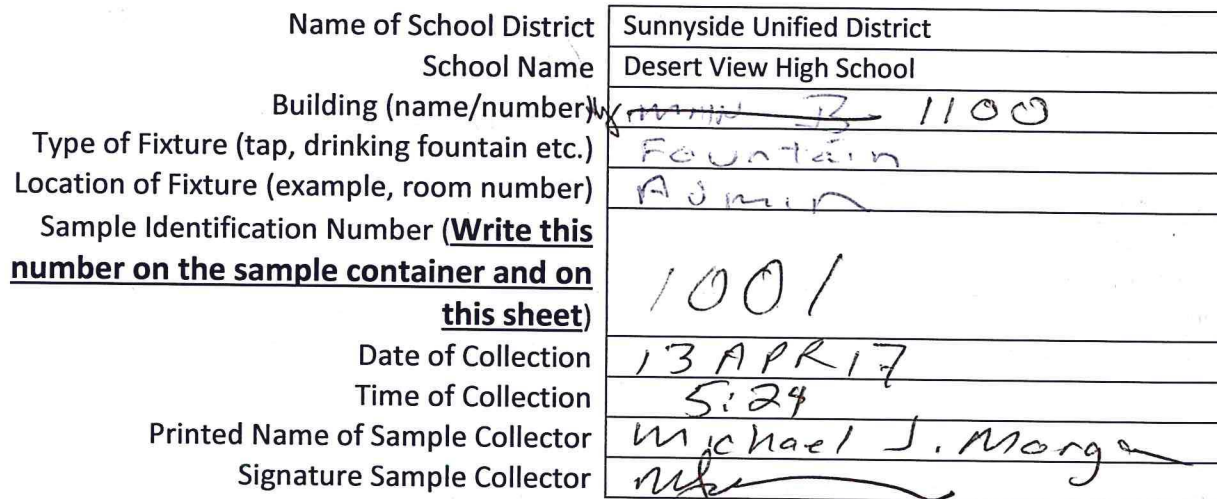 Name of School District Sunnyside Unified District
School Name Desert View High School
Building (name/number) 1100
Type of Fixture (tap, drinking fountain etc.) Fountain
Location of Fixture (example, room number) Admin
Sample Identification Number (Write this
number on the sample container and on
this sheet) 1001
Date of Collection 13 APR 17
Time of Collection 5:24
Printed Name of Sample Collector Michael J. Morgan
Signature Sample Collector